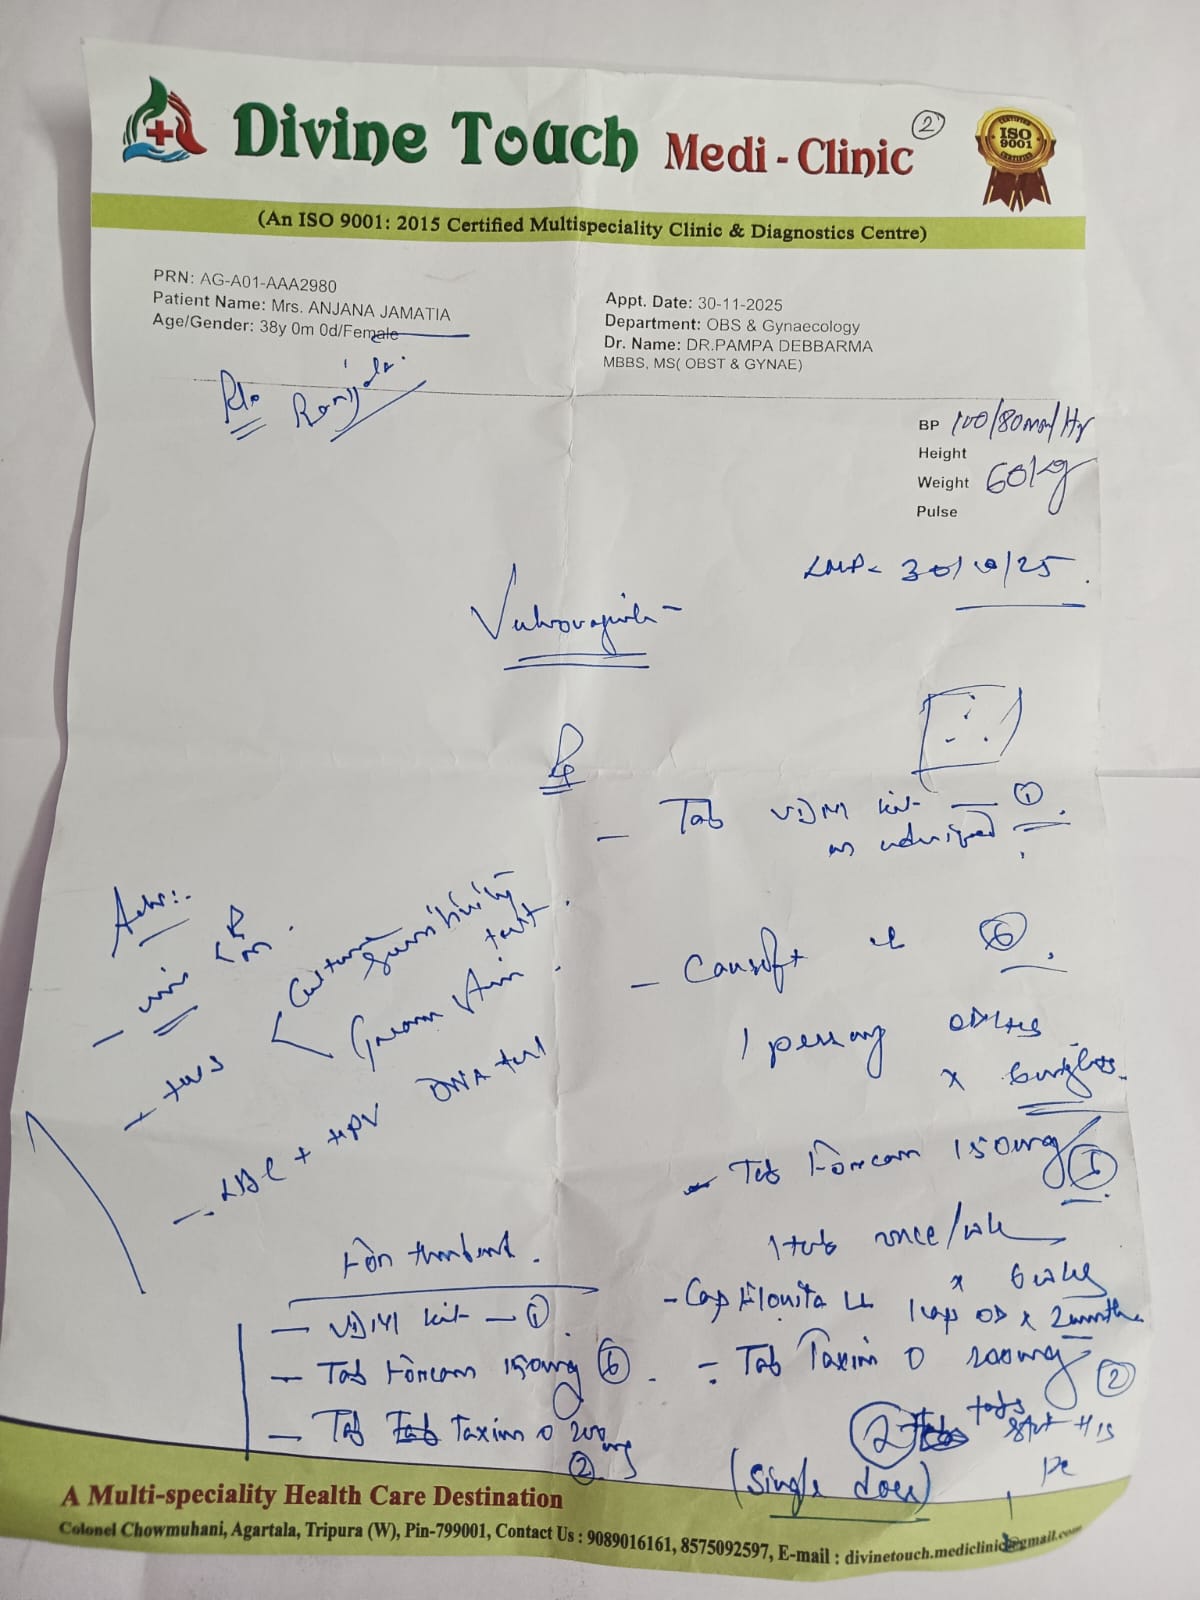 Divine Touch Medi - Clinic
2
ISO 9001
(An ISO 9001: 2015 Certified Multispeciality Clinic & Diagnostics Centre)
PRN: AG-A01-AAA2980
Patient Name: Mrs. ANJANA JAMATIA
Age/Gender: 38y 0m 0d/Female
Appt. Date: 30-11-2025
Department: OBS & Gynaecology
Dr. Name: DR.PAMPA DEBBARMA
MBBS, MS( OBST & GYNAE)
BP 100/80mm/Hg
Height
Weight 60kg
Pulse
LMP - 30/10/25
- Tab VDM kit — 1
as advised
- 6
1 pessary
x 6 nights
- Tab Forcan 150mg 6
1 tab once/wk
x 6 wks
- Cap 1 cap OD x 2 months
- Tab Taxim O 200mg 2
2 tabs stat
(single dose)
Adv:-
Culture sensitivity test
Gram stain
- LBC + HPV DNA test
For husband.
- VDM kit - 1
- Tab Forcan 150mg 6
- Tab Taxim O 200mg
2
A Multi-speciality Health Care Destination
Colonel Chowmuhani, Agartala, Tripura (W), Pin-799001, Contact Us : 9089016161, 8575092597, E-mail : divinetouch.mediclinic@gmail.com